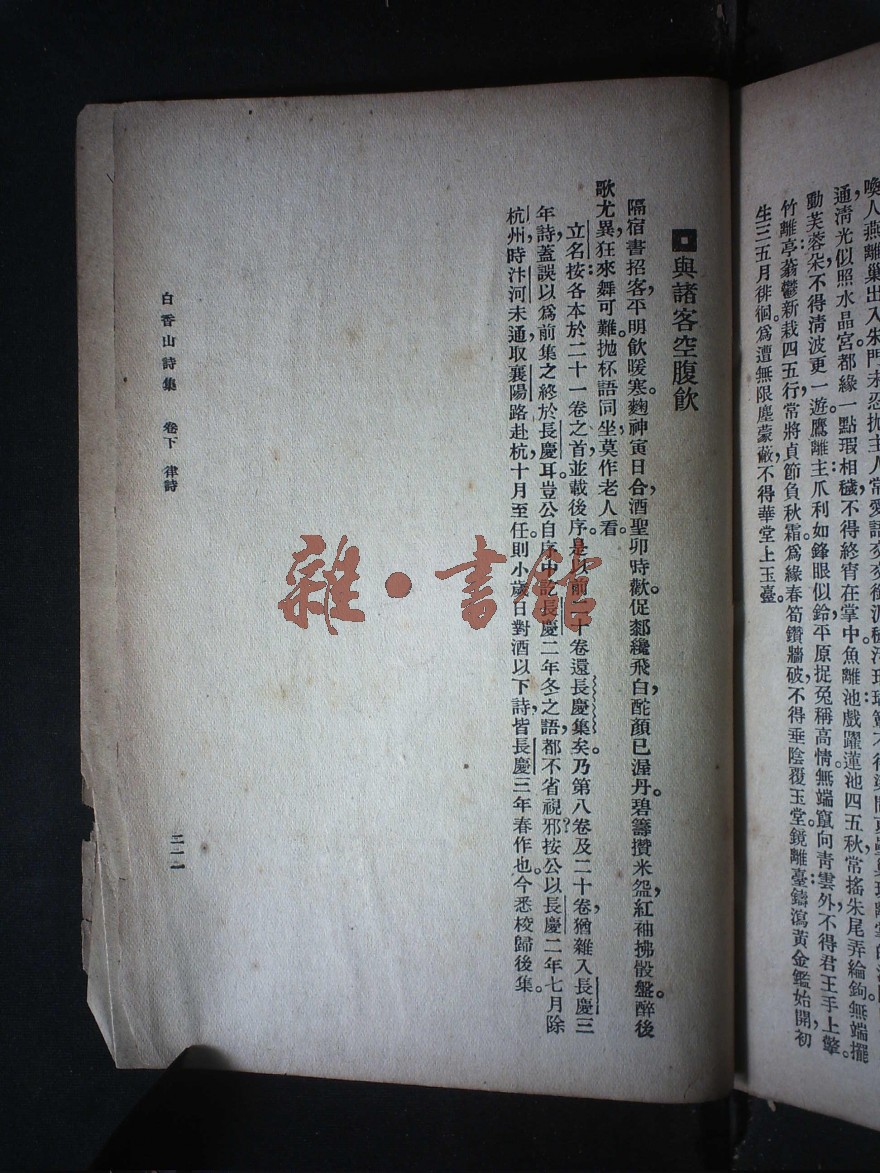 喚人燕離巢出入朱門未忍抛主人常愛語交交銜泥穢
通淸光似照水晶宮都緣一點瑕相穢，不得終宵在掌中。魚離池戲躍蓮池四五秋常搖朱尾弄綸鉤。無端擺
動芙蓉朵不得淸波更一遊。鷹離主爪利如鋒眼似鈴平原捉兔稱高情。無端竄向靑雲外不得君王手上擎。
竹離亭蓊鬱新栽四五行常將貞節負秋霜。爲緣春筍鑽牆破，不得垂陰覆玉堂。鏡離臺鑄瀉黃金鑑始開，初
生三五月徘徊。爲遭無限塵蒙蔽，不得華堂上玉臺。
與諸客空腹飲
隔宿書招客，平明飲暖寒。麴神寅日合，酒聖卯時歡。促剗纔飛白，酡顏已渥丹。碧籌攢米盌，紅袖拂骰盤。醉後
歌尤異，狂來舞可難。抛杯語同坐，莫作老人看。
立名按：各本於二十一卷之首，並載後序。是以前二十卷還長慶集矣。乃第八卷及二十卷，猶雜入長慶三
年詩，蓋誤以爲前集之終於長慶耳。豈公自序中訖長慶二年冬之語，都不省視邪？按公以長慶二年七月除
杭州，時汴河未通，取襄陽路赴杭，十月至任。則小歲日對酒以下詩，皆長慶三年春作也。今悉校歸後集。
白香山詩集　卷下　律詩
二一一
雜·書館